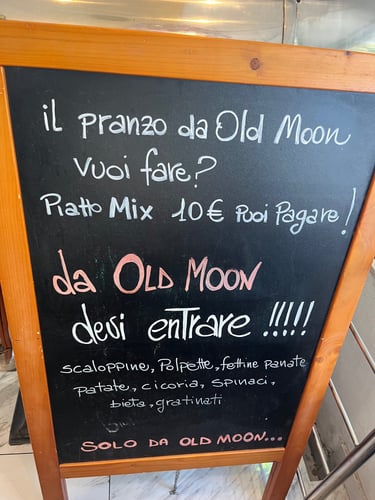 il pranzo da Old Moon
vuoi fare?
Piatto Mix 10€ Puoi Pagare!
da OLD MOON
devi enTrare !!!!!
scaloppine, Polpette, fettine panate
Patate, cicoria, spinaci,
bieta, gratinati
SOLO DA OLD MOON...